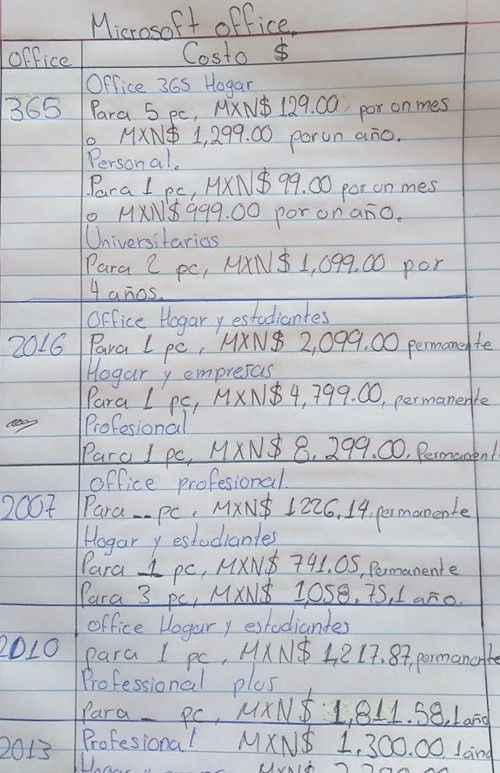 Microsoft office.
Office Costo $
Office 365 Hogar
365 Para 5 pc, MXN$ 129.00 por un mes
o MXN$ 1,299.00 por un año.
Personal.
Para 1 pc, MXN$ 99.00 por un mes
o MXN$ 999.00 por un año.
Universitarios
Para 2 pc, MXN$ 1,099.00 por
4 años.
Office Hogar y estudiantes
2016 Para 1 pc, MXN$ 2,099.00 permanente
Hogar y empresas
Para 1 pc, MXN$ 4,799.00, permanente
Profesional
Para 1 pc, MXN$ 8,299.00. Permanent
Office profesional.
2007 Para -- pc, MXN$ 1226.14, permanente
Hogar y estudiantes
Para 1 pc, MXN$ 741.05, Permanente
Para 3 pc, MXN$ 1,058.75, 1 año.
office Hogar y estudiantes
2010 para 1 pc, MXN$ 1,217.87, permanente
Professional plus
Para _ pc, MXN$ 1,811.58, 1 año
2013 Profesional MXN$ 1,300.00, 1 año
Hogar y